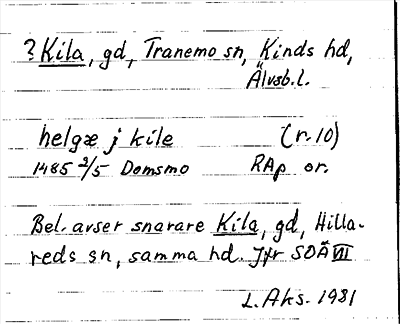 ? Kila, gd, Tranemo sn, Kinds hd,
Älvsb.l.
helgæ j kile (r.10)
1485 2/5 Domsmo RAp or.
Bel. avser snarare Kila, gd, Hilla-
reds sn, samma hd. Jfr SOÄ VII
L. Aks. 1981